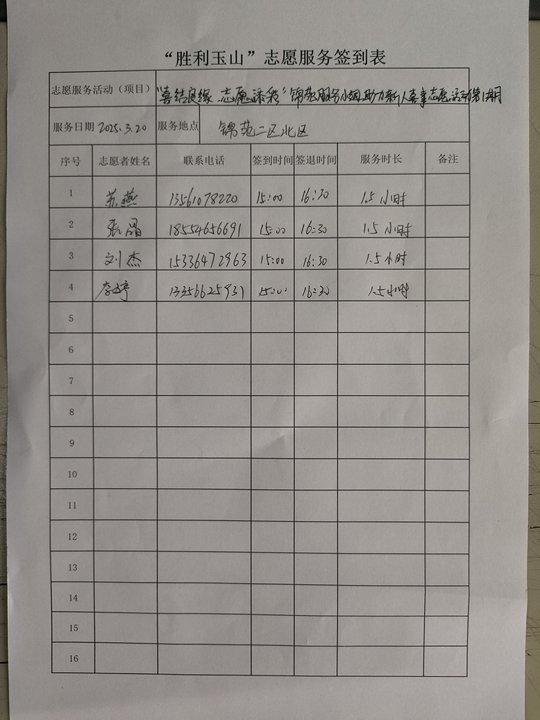 “胜利玉山”志愿服务签到表
志愿服务活动（项目） “喜结良缘 志愿添彩”锦苑服务小组助力新人喜事志愿活动第12期
服务日期 2025.3.20 服务地点 锦苑二区北区
序号 志愿者姓名 联系电话 签到时间 签退时间 服务时长 备注
1 苏燕 13561078220 15:00 16:30 1.5小时
2 张晶 18554656691 15:00 16:30 1.5小时
3 刘杰 15336472963 15:00 16:30 1.5小时
4 李婷 13356625937 15:00 16:30 1.5小时
5
6
7
8
9
10
11
12
13
14
15
16